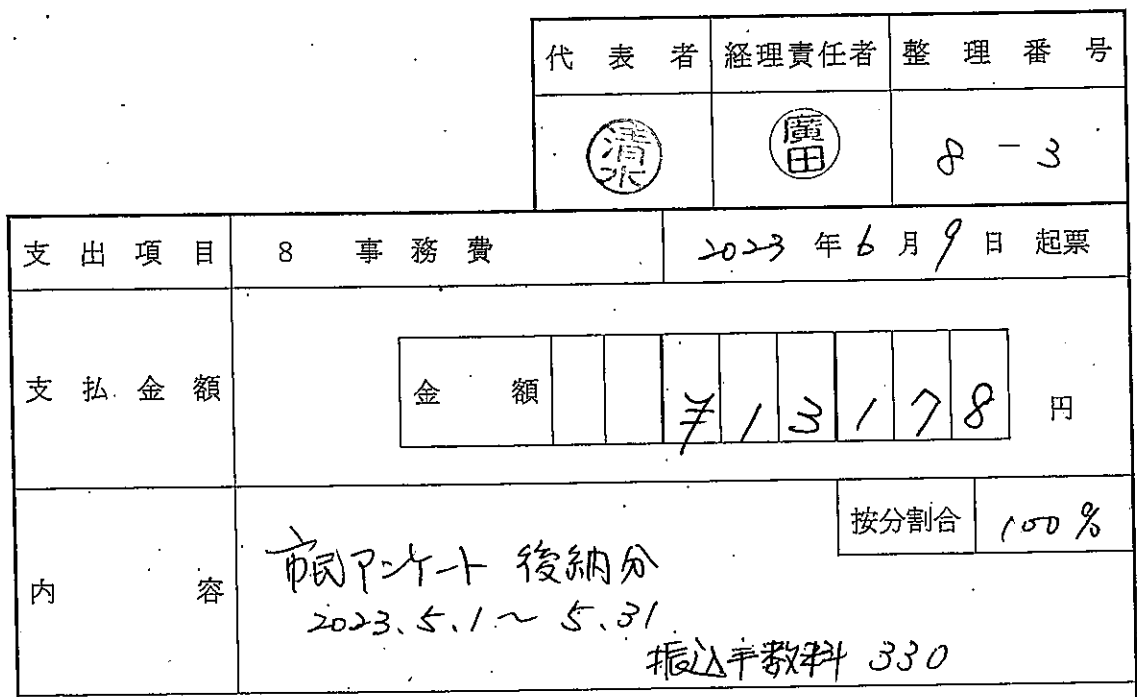 代表者 経理責任者 整理番号
清水 廣田 8-3
支出項目 8 事務費 2023年6月9日 起票
支払金額 金額 ¥13178 円
按分割合 100%
内容 市民アンケート 後納分
2023.5.1～5.31
振込手数料 330